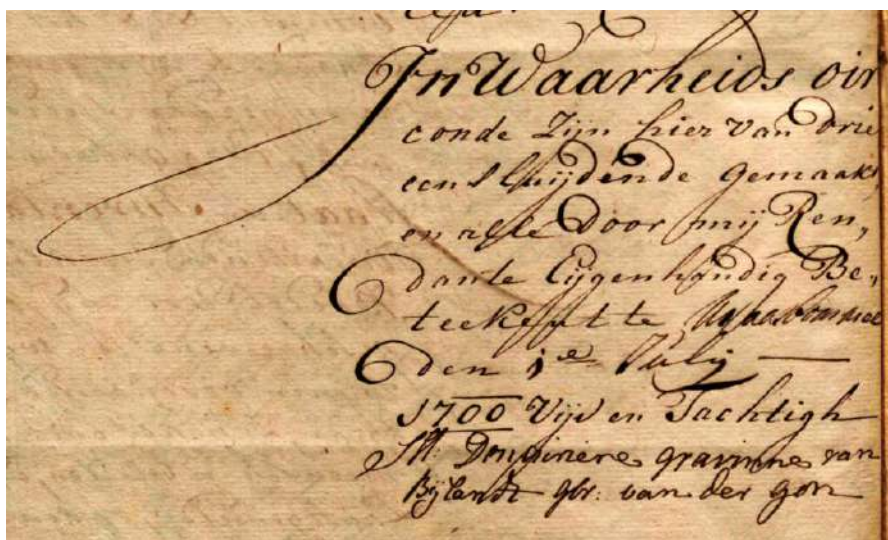 In Waarheids oir
conde Zijn hier van drie
eensluijdende gemaakt,
en alle Door mij Ren,,
dante Eijgenhandig Be,,
teekent te
den 1e Julij
1700 Vijf en Tachtigh
Douairiere gravinne van
Bijlandt gbr: van der gon